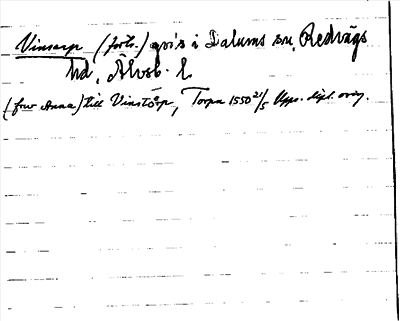 Vinsarp (forts.) gods i Dalums sn, Redvägs
hd, Älvsb. l.
(fru Anna) till Vinstorp, Torpa 1550 21/5 Upps. dipl. orig.